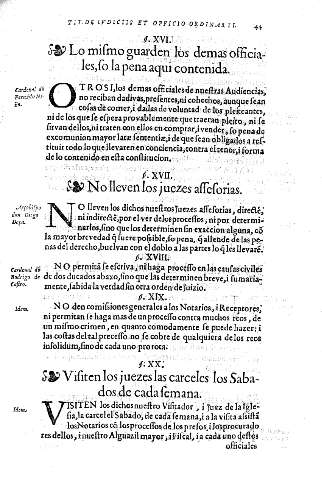 TIT. DE IVDICIIS ET OFFICIO ORDINARII. 44
§. XVI.
Lo mismo guarden los demas officia-
les, so la pena aqui contenida.
Cardenal dõ
OTROSI, los demas officiales de nuestras Audiencias,
no reciban dadivas, presentes, ni cohechos, aunque sean
cosas de comer, i dadas de voluntad de los pleiteantes,
ni de los que se espera provablemente que traeran pleito, ni se
sirvan dellos, ni traten con ellos en comprar, i vender, so pena de
excomunion mayor latæ sententiæ, i de que sean obligados a res-
tituir todo lo que llevaren en conciencia, contra el tenor, i forma
de lo contenido en esta constitucion.
§. XVII.
No lleven los juezes assesorias.
Arçobispo
don Diego
Deça.
NO lleven los dichos nuestros Juezes assesorias, directè,
ni indirectè, por el ver de los processos, ni por determi-
narlos, sino que los determinen sin exaccion alguna, cõ
la mayor brevedad q̃ fuere possible, so pena, q̃ allende de las pe-
nas del derecho, buelvan con el doblo a las partes lo q̃ les llevarẽ.
§. XVIII.
Cardenal dõ
Rodrigo de
Castro.
NO permitã se escriva, ni haga processo en las causas civiles
de dos ducados abaxo, sino que las determinen breve, i su mariamente,
sabida la verdad sin otra orden de juizio.
§. XIX.
Idem.
NO den comisiones generales a los Notarios, i Receptores,
ni permitan se haga mas de un processo contra muchos reos, de
un mismo crimen, en quanto comodamente se puede hazer; i
las costas del tal processo no se cobre de qualquiera de los reos
insolidum, sino de cada uno pro rota.
§. XX.
Visiten los juezes las carceles los Saba-
dos de cada semana.
Idem.
VISITEN los dichos nuestro Visitador, i Juez de la Igle-
sia, la carcel el Sabado, de cada semana, i a la visita assistã
los Notarios cõ los processos de los presos, i los procurado
res dellos, i nuestro Alguazil mayor, i Fiscal, i a cada uno destos
officiales